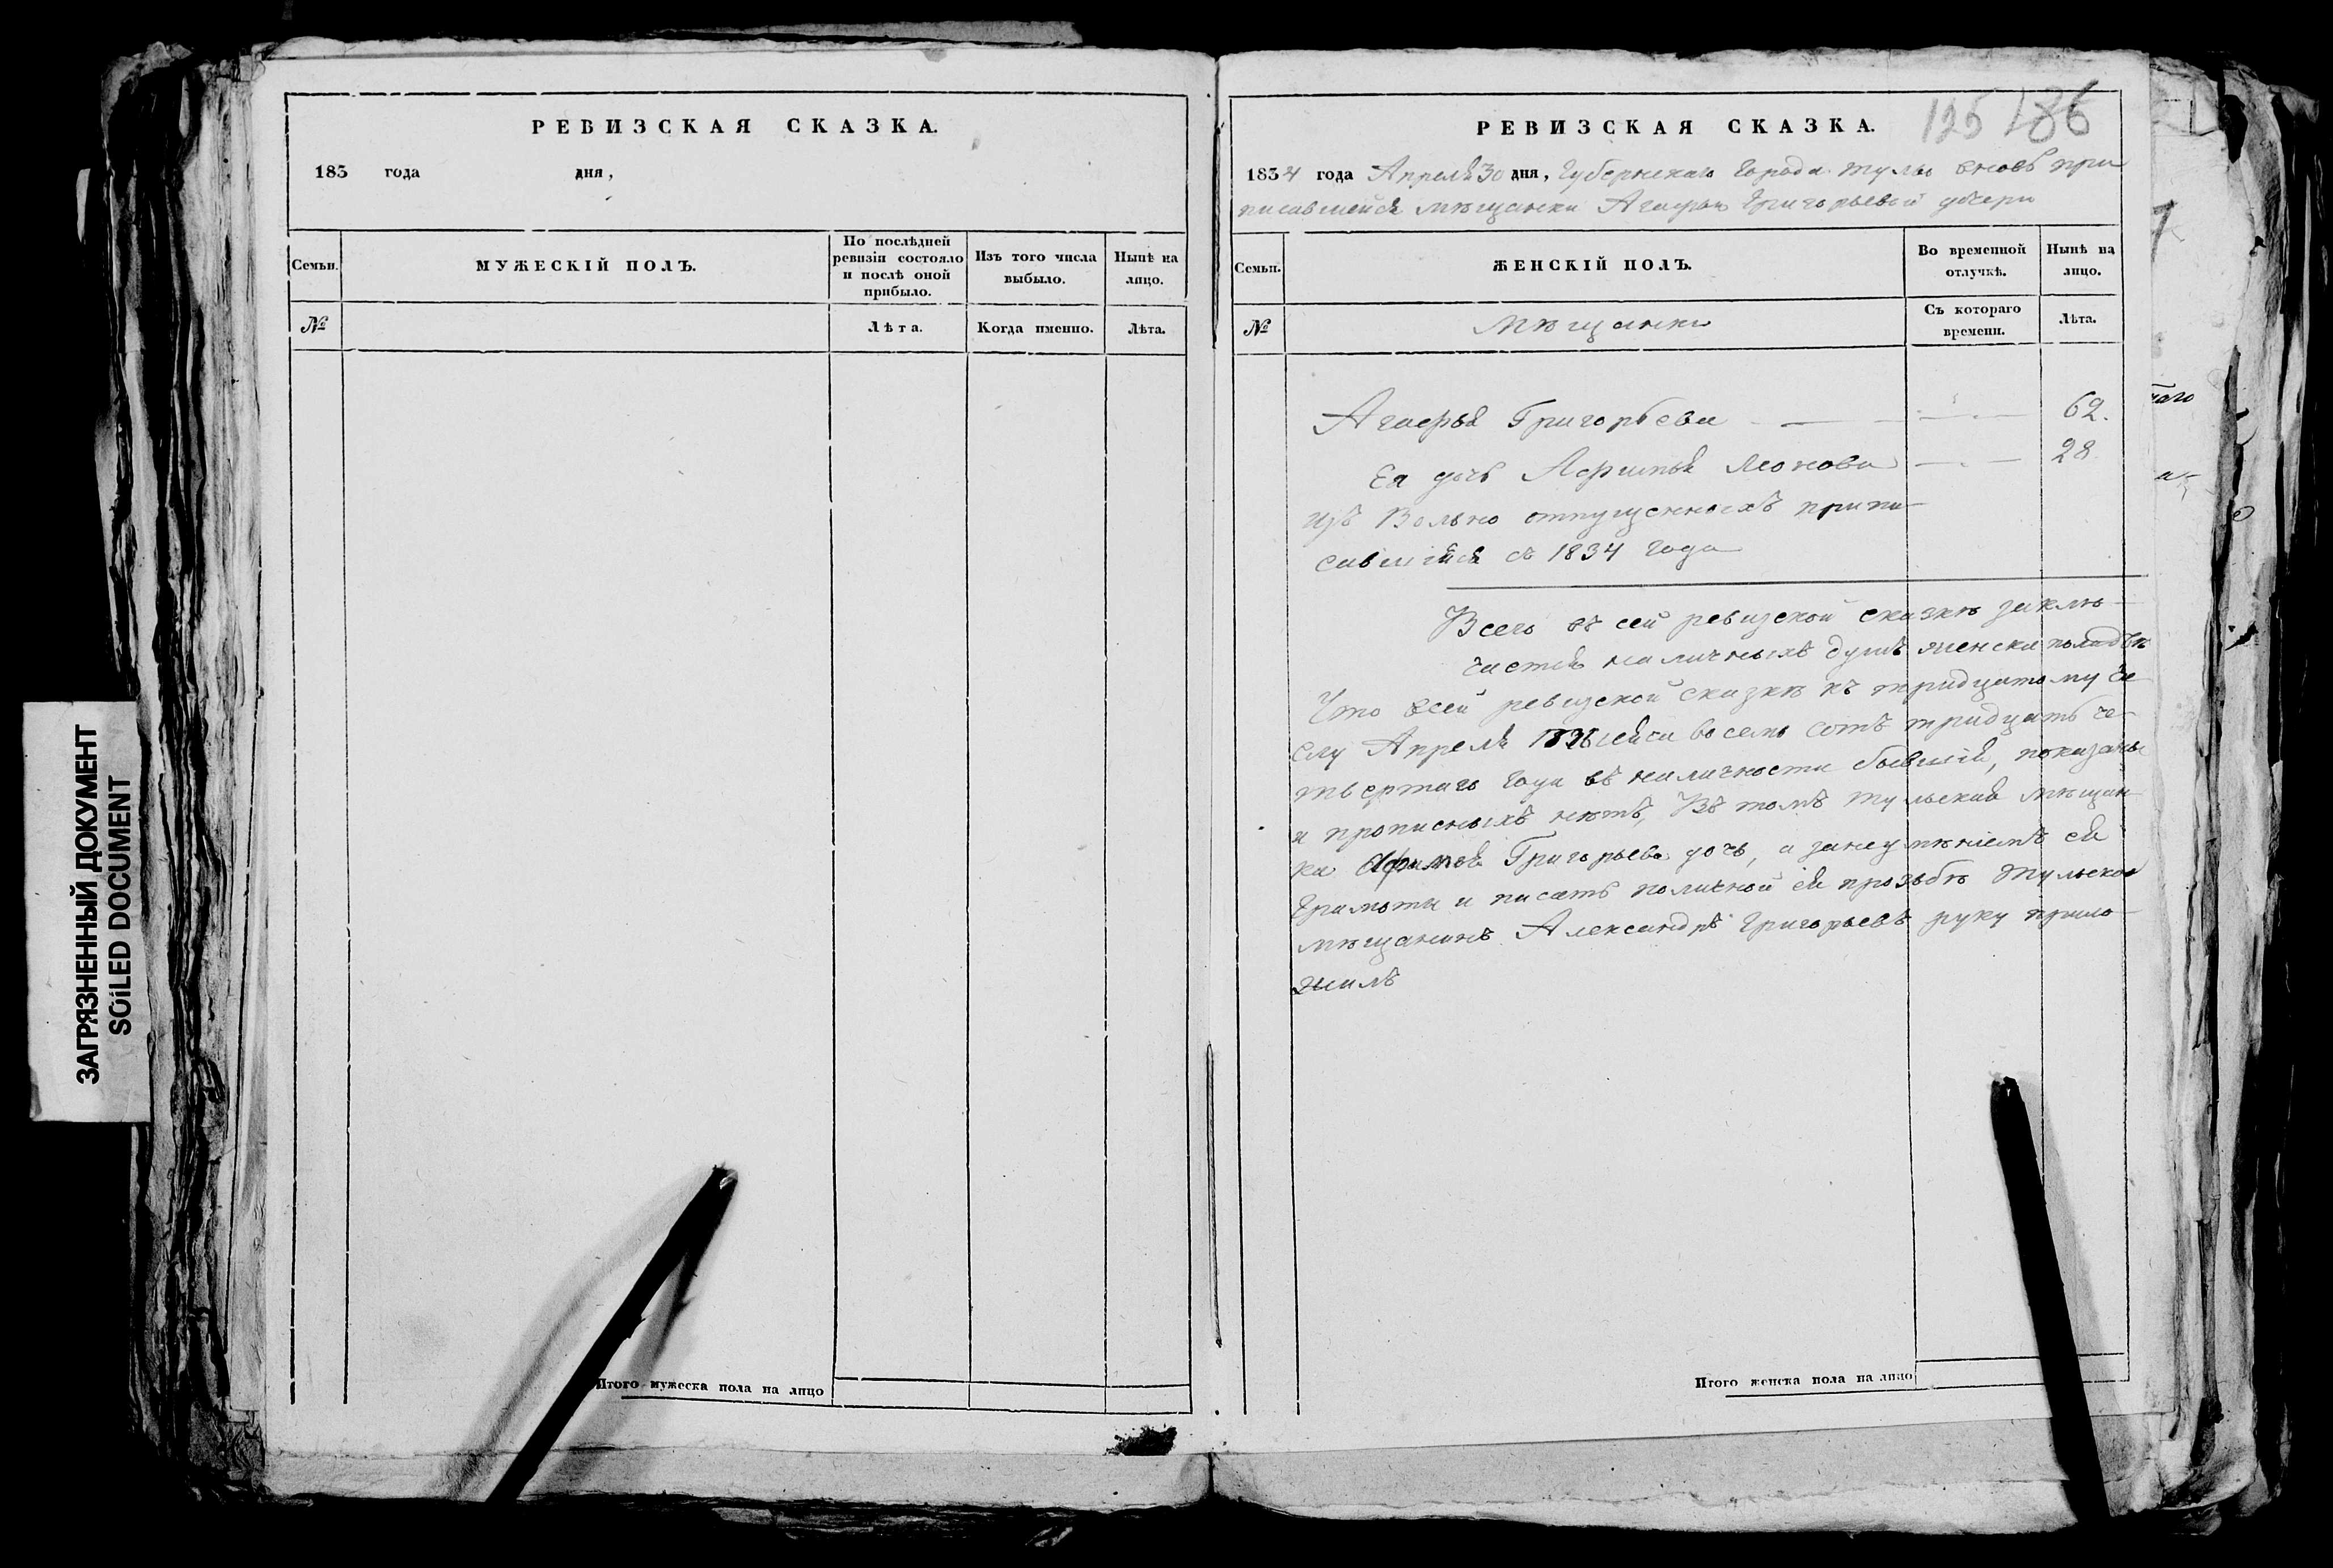 РЕВИЗСКАЯ СКАЗКА.
183 года дня,
Семьи.
МУЖЕСКІЙ ПОЛЪ.
По послѣдней ревизіи состояло и послѣ оной прибыло.
Изъ того числа выбыло.
Нынѣ на лицо.
№
Лѣта.
Когда именно.
Лѣта.
Итого мужеска пола на лицо
ЗАГРЯЗНЕННЫЙ ДОКУМЕНТ
SOILED DOCUMENT
125 186
РЕВИЗСКАЯ СКАЗКА.
1834 года Апреля 30 дня, Губернскаго Города Тулы вновь при
писавшейся мѣщанки Агафьи Григорьевой дочери
Семьи.
ЖЕНСКІЙ ПОЛЪ.
Во временной отлучкѣ.
Нынѣ на лицо.
№
Мѣщанки
Съ котораго времени.
Лѣта.
Агафья Григорьева 62.
Ея дочь Афимья Леонова 28
изъ Вольно отпущенныхъ припи-
савшіяся съ 1834 года
Всего въ сей ревизской сказкѣ заклю-
чается наличныхъ душъ женска пола двѣ
Что всей ревизской сказкѣ къ тридцатому чи
слу Апреля восемь сотъ тридцать че-
твертаго года въ наличности бывшія, показаны
и прописныхъ нѣтъ, Въ томъ тульская мѣщан
ка Григорьева дочь, а занеумѣніемъ ея
Грамоты и писать поличной ея прозьбѣ Тульской
мѣщанинъ Александръ Григорьевъ руку прило-
жилъ
Итого женска пола на лицо